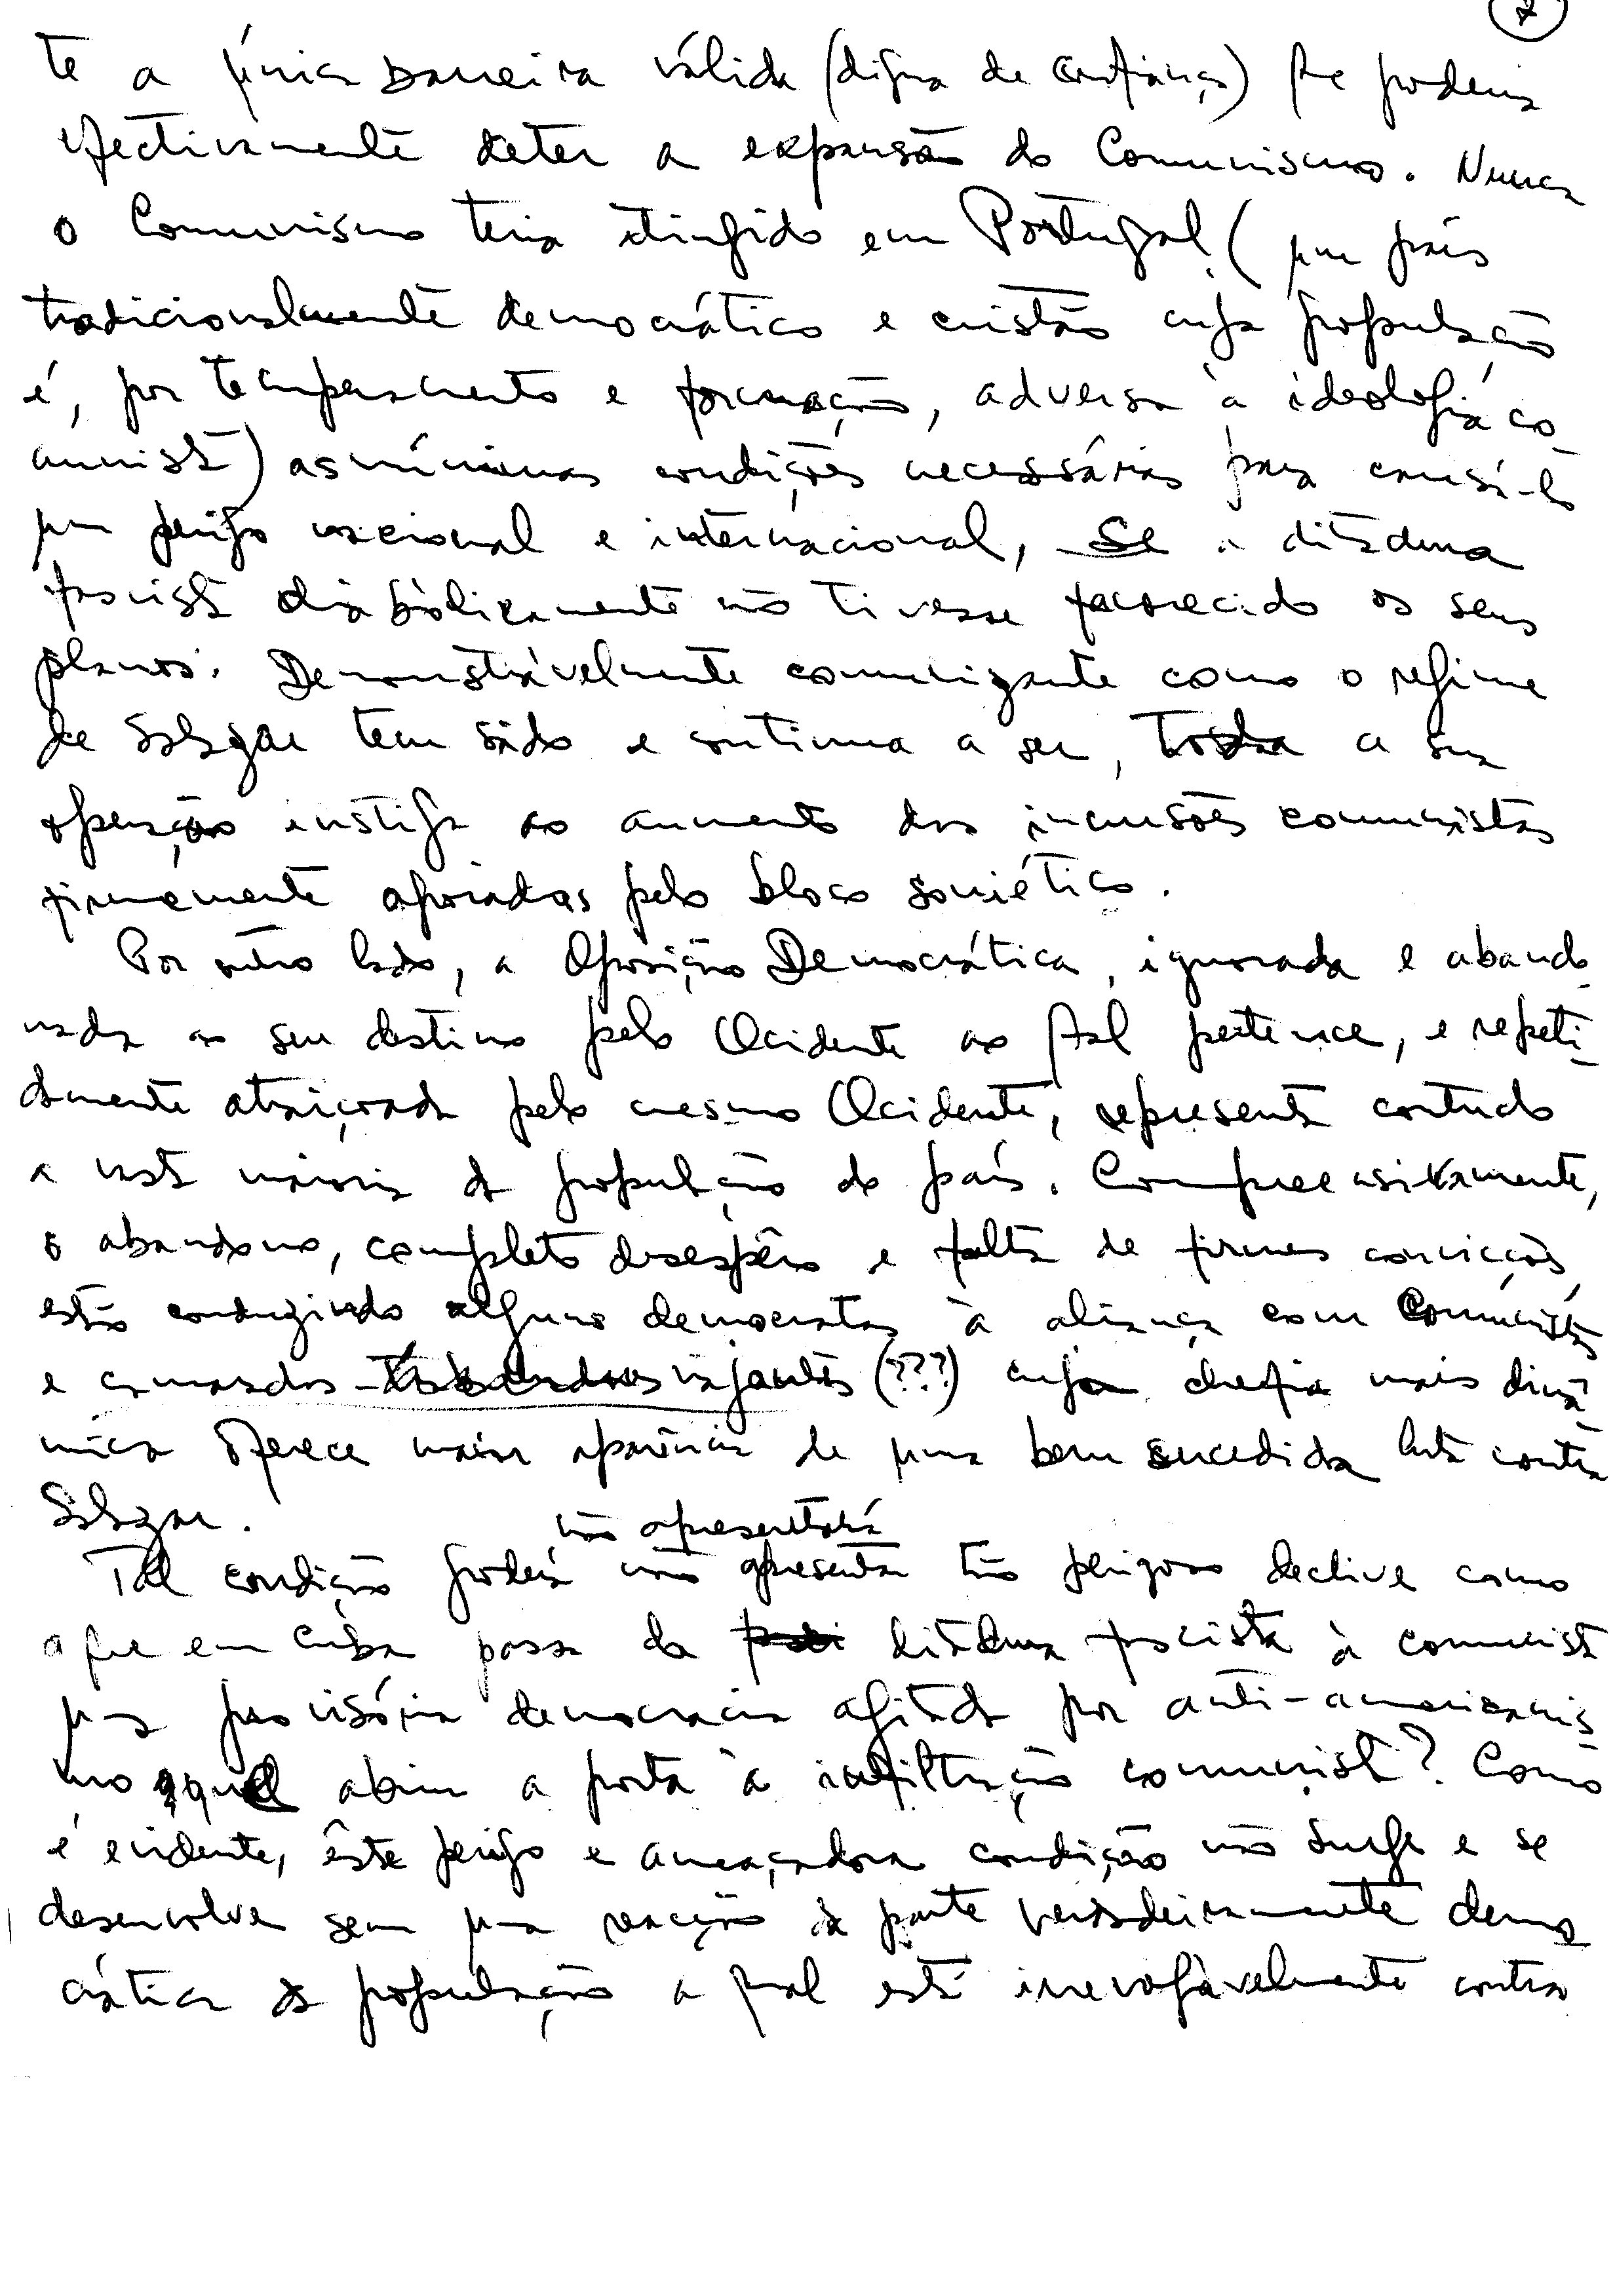 7
te a única barreira válida (digna de confiança) que poderia
efectivamente deter a expansão do Comunismo. Nunca
o Comunismo teria atingido em Portugal (um país
tradicionalmente democrático e cristão cuja população
é, por temperamento e formação, adversa à ideologia co
munista) as mínimas condições necessárias para
um perigo nacional e internacional, se a ditadura
fascista diabòlicamente não tivesse favorecido os seus
planos. Demonstràvelmente comunizante como o regime
de Salazar tem sido e continua a ser, toda a sua
operação instiga ao aumento das incursões comunistas
firmemente apoiadas pelo bloco soviético.
Por outro lado, a Oposição Democrática, ignorada e abando-
nada ao seu destino pelo Ocidente ao qual pertence, e repeti-
damente atraiçoada pelo mesmo Ocidente, representa contudo
a vasta maioria da população do país. Compreensivamente,
o abandono, completo desespêro e falta de firmes convicções,
estão conduzindo alguns democratas à aliança com Comunistas
e camaradas viajantes (???) cuja chefia mais dinâ-
mica oferece maior aparência de uma bem sucedida luta contra
Salazar.
não apresentará
Tal condição poderá não apresentar tão perigoso declive como
a que em Cuba passa da ditadura fascista à comunista
uma provisória democracia agitada por anti-americanis
mo que abriu a porta à infiltração comunista? Como
é evidente, êste perigo e ameaçadora condição não surge e se
desenvolve sem uma reacção da parte verdadeiramente demo
crática da população a qual está irrevogàvelmente contra